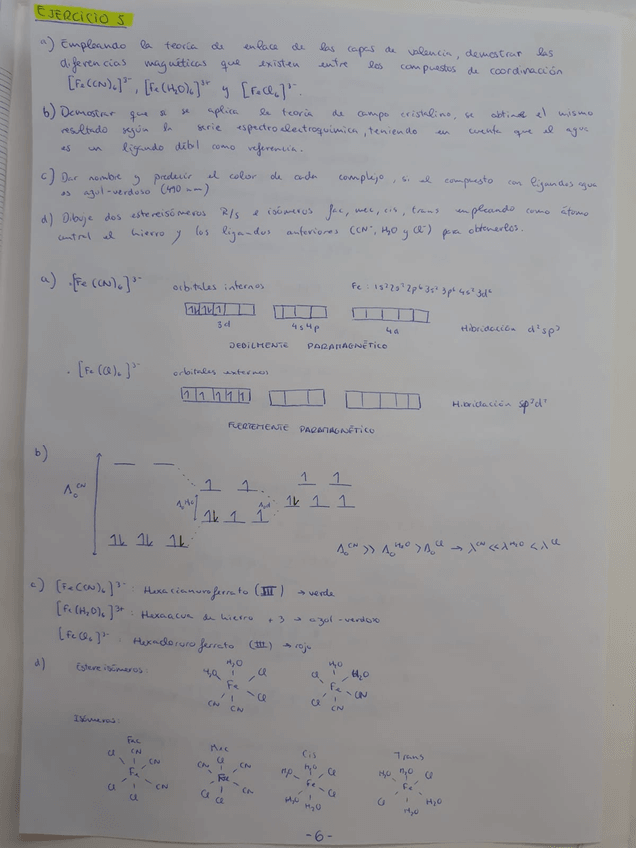 EJERCICIO 5
a) Empleando la teoría de enlace de las capas de valencia, demostrar las
diferencias magnéticas que existen entre los compuestos de coordinación
[Fe(CN)₆]³⁻, [Fe(H₂O)₆]³⁺ y [FeCl₆]³⁻.
b) Demostrar que si se aplica la teoría de campo cristalino, se obtiene el mismo
resultado según la serie espectroelectroquímica, teniendo en cuenta que el agua
es un ligando débil como referencia.
c) Dar nombre y predecir el color de cada complejo, si el compuesto con ligandos agua
es azul-verdoso (490 nm)
d) Dibuje dos estereoisómeros R/s e isómeros fac, mec, cis, trans empleando como átomo
central el hierro y los ligandos anteriores (CN⁻, H₂O y Cl⁻) para obtenerlos.
a) · [Fe(CN)₆]³⁻ orbitales internos Fe: 1s²2s²2p⁶3s²3p⁶4s²3d⁶
3d 4s4p 4d Hibridación d²sp³
DEBILMENTE PARAMAGNÉTICO
· [Fe(Cl)₆]³⁻ orbitales externos
Hibridación sp³d²
FUERTEMENTE PARAMAGNÉTICO
b)
Λ₀ᶜᴺ
Λ₀ᶜᴺ >> Λ₀ᴴ²ᴼ > Λ₀ᶜˡ → λᶜᴺ << λᴴ²ᴼ < λᶜˡ
c) [Fe(CN)₆]³⁻: Hexacianuroferrato (III) → verde
[Fe(H₂O)₆]³⁺: Hexaacua de hierro +3 → azul-verdoso
[FeCl₆]³⁻ Hexacloruroferrato (III) → rojo
d) Estereisómeros:
H₂O H₂O
H₂O Cl Cl H₂O
Fe Fe
Cl CN
CN CN Cl CN
Isómeros:
Fac Mec Cis Trans
CN Cl H₂O H₂O
Cl CN CN CN H₂O Cl H₂O Cl
Fe Fe Fe Fe
Cl CN CN Cl H₂O Cl Cl H₂O
Cl Cl H₂O H₂O
-6-